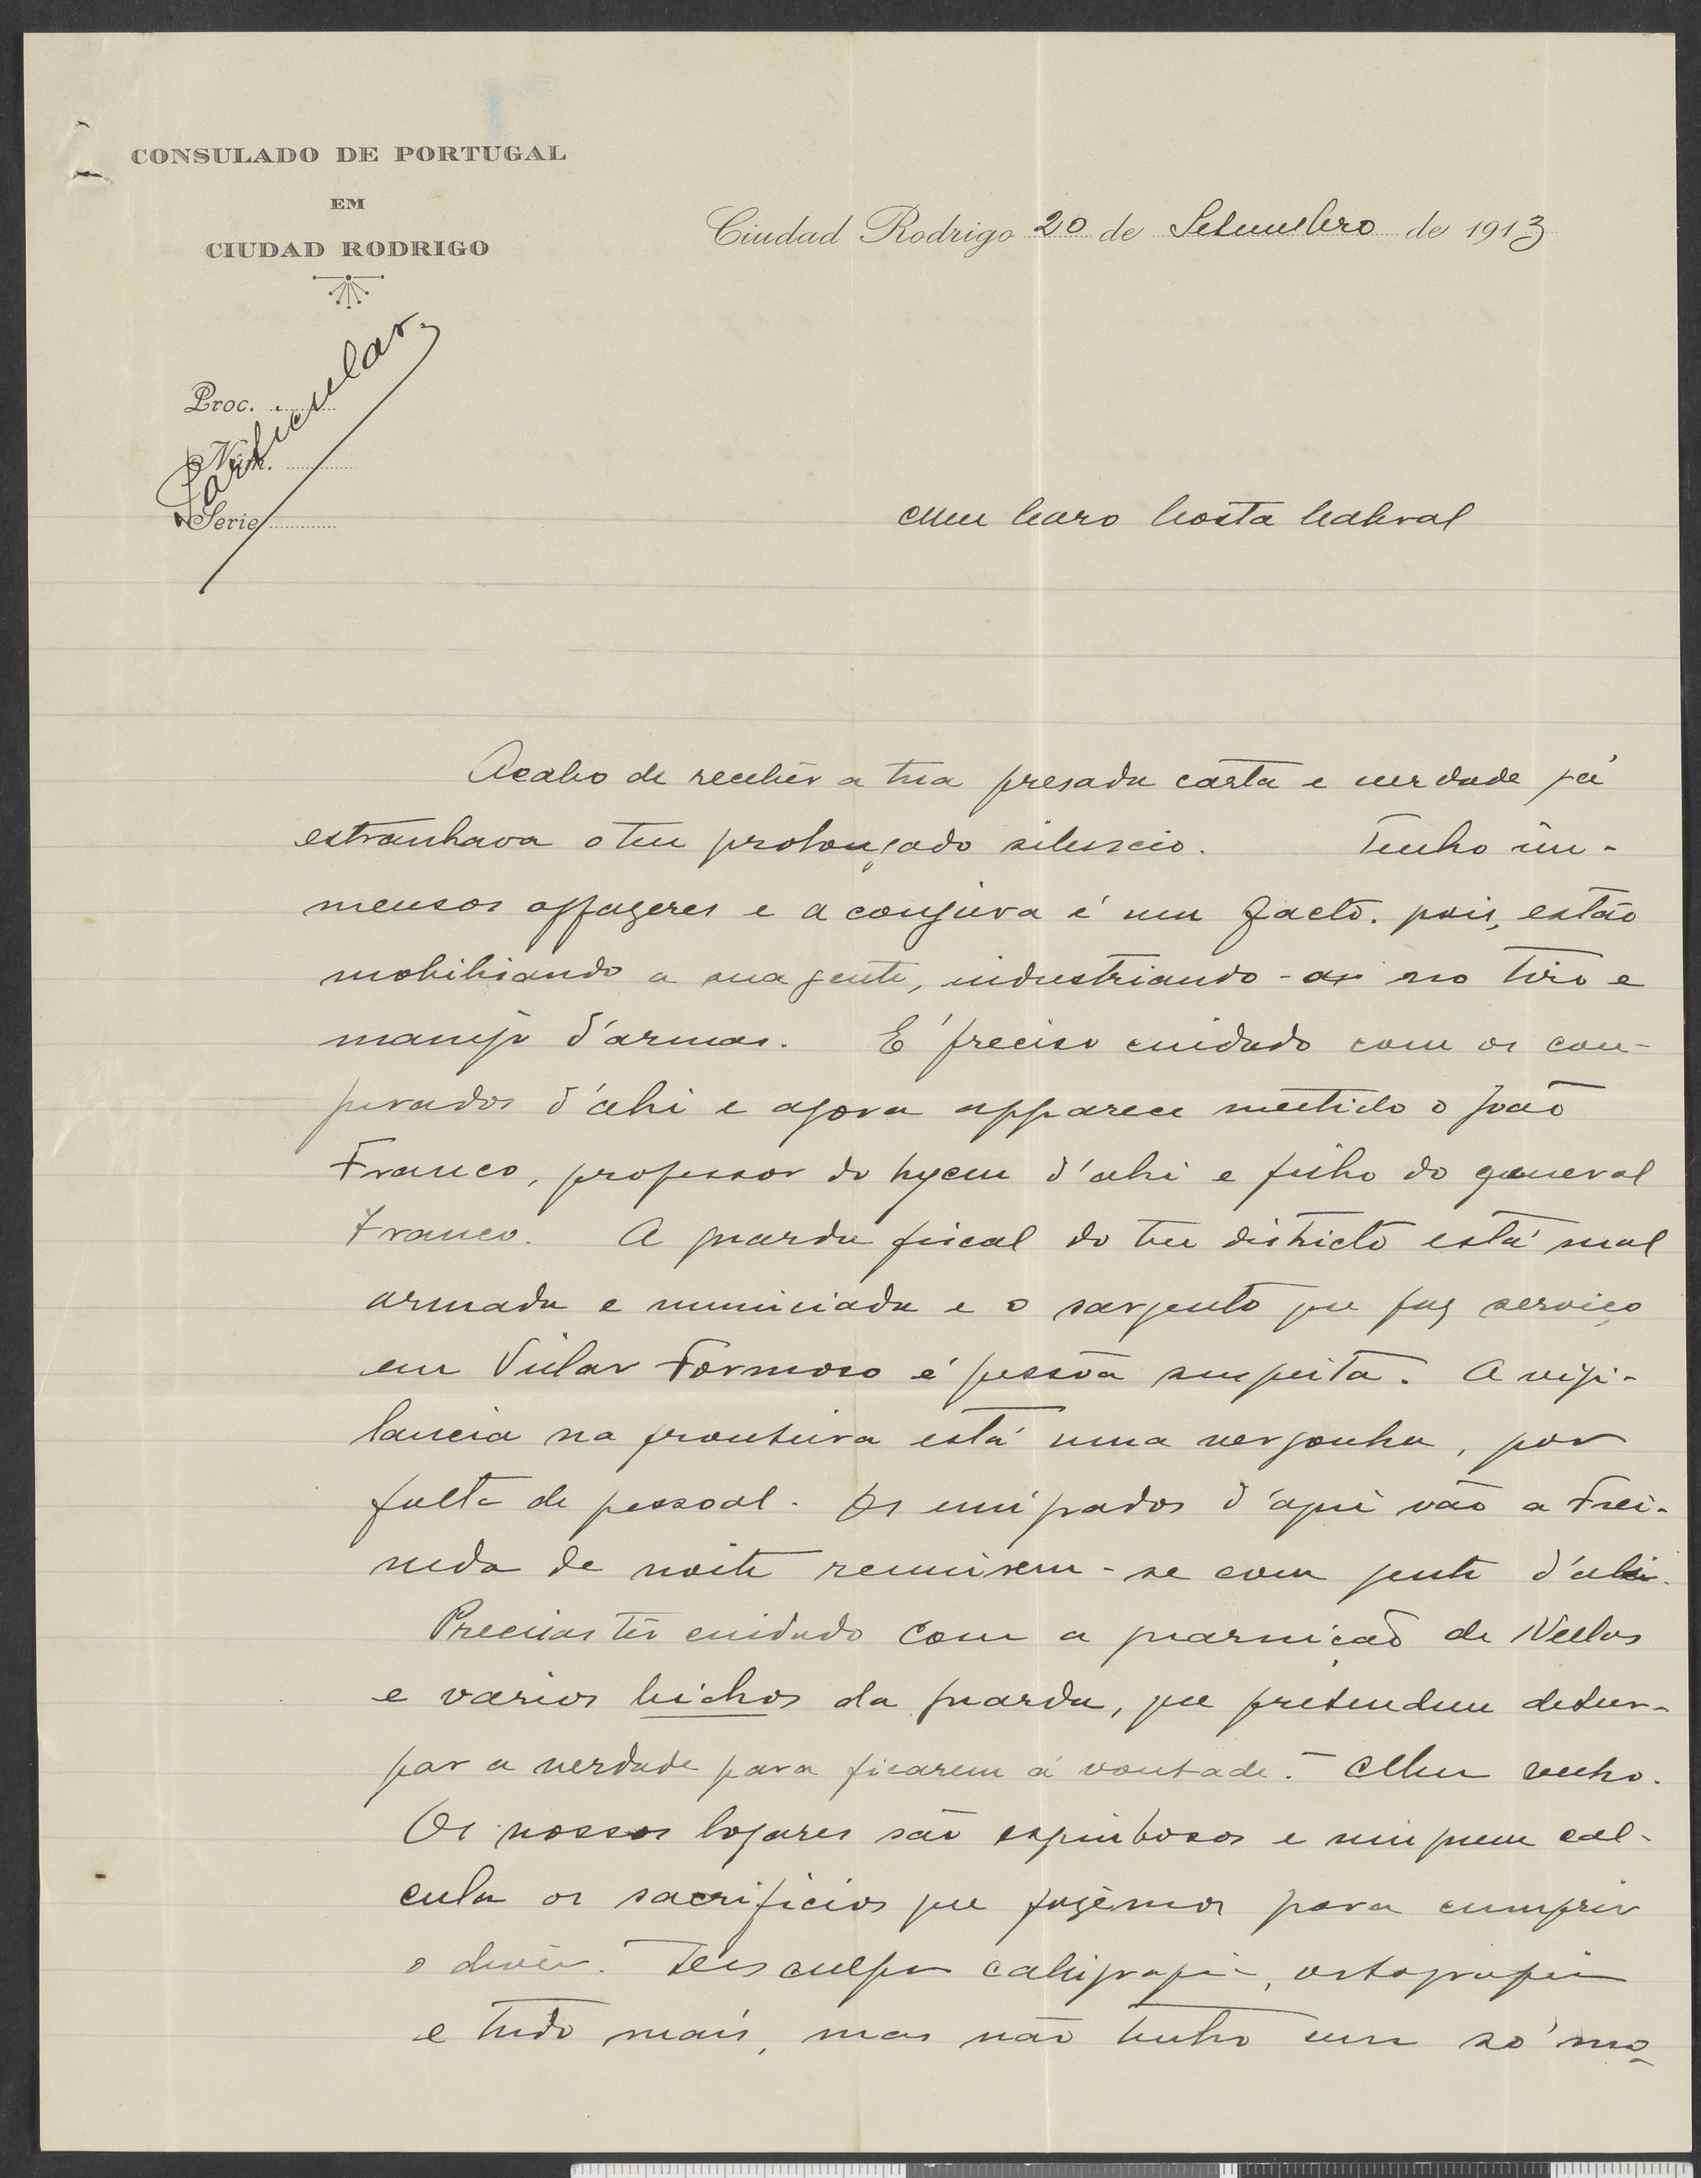 CONSULADO DE PORTUGAL
EM
CIUDAD RODRIGO
Ciudad Rodrigo 20 de Setembro de 1913
Particular
Proc.
Núm.
Serie
Meu Caro Costa Cabral
Acabo de recebêr a tua presada carta e verdade já
estranhava o teu prolongado silencio. Tenho im-
mensos affazeres e a conjura é um facto. pois, estão
mobilisando a sua gente, industriando-os no tiro e
manejo d'armas. E' preciso cuidado com os con-
jurados d'ahi e agora apparece mettido o João
Franco, professor do lyceu d'ahi e filho do general
Franco. A guarda fiscal do teu districto está mal
armada e municiada e o sargento que faz serviço
em Vilar Formoso é pessôa suspeita. A vigi-
lancia na fronteira está uma vergonha, por
falta de pessoal. Os emigrados d'aqui vão a Frei-
neda de noite reunirem-se com gente d'ahi.
Precisas têr cuidado com a guarnição de
e varios bichos da guarda, que pretendem detur-
par a verdade para ficarem á vontade. Meu velho.
Os nossos logares são espinhosos e ninguem cal-
cula os sacrificios que fazêmos para cumprir
o devêr. Desculpa caligrafia, ortografia
e tudo mais, mas não tenho um só mo-